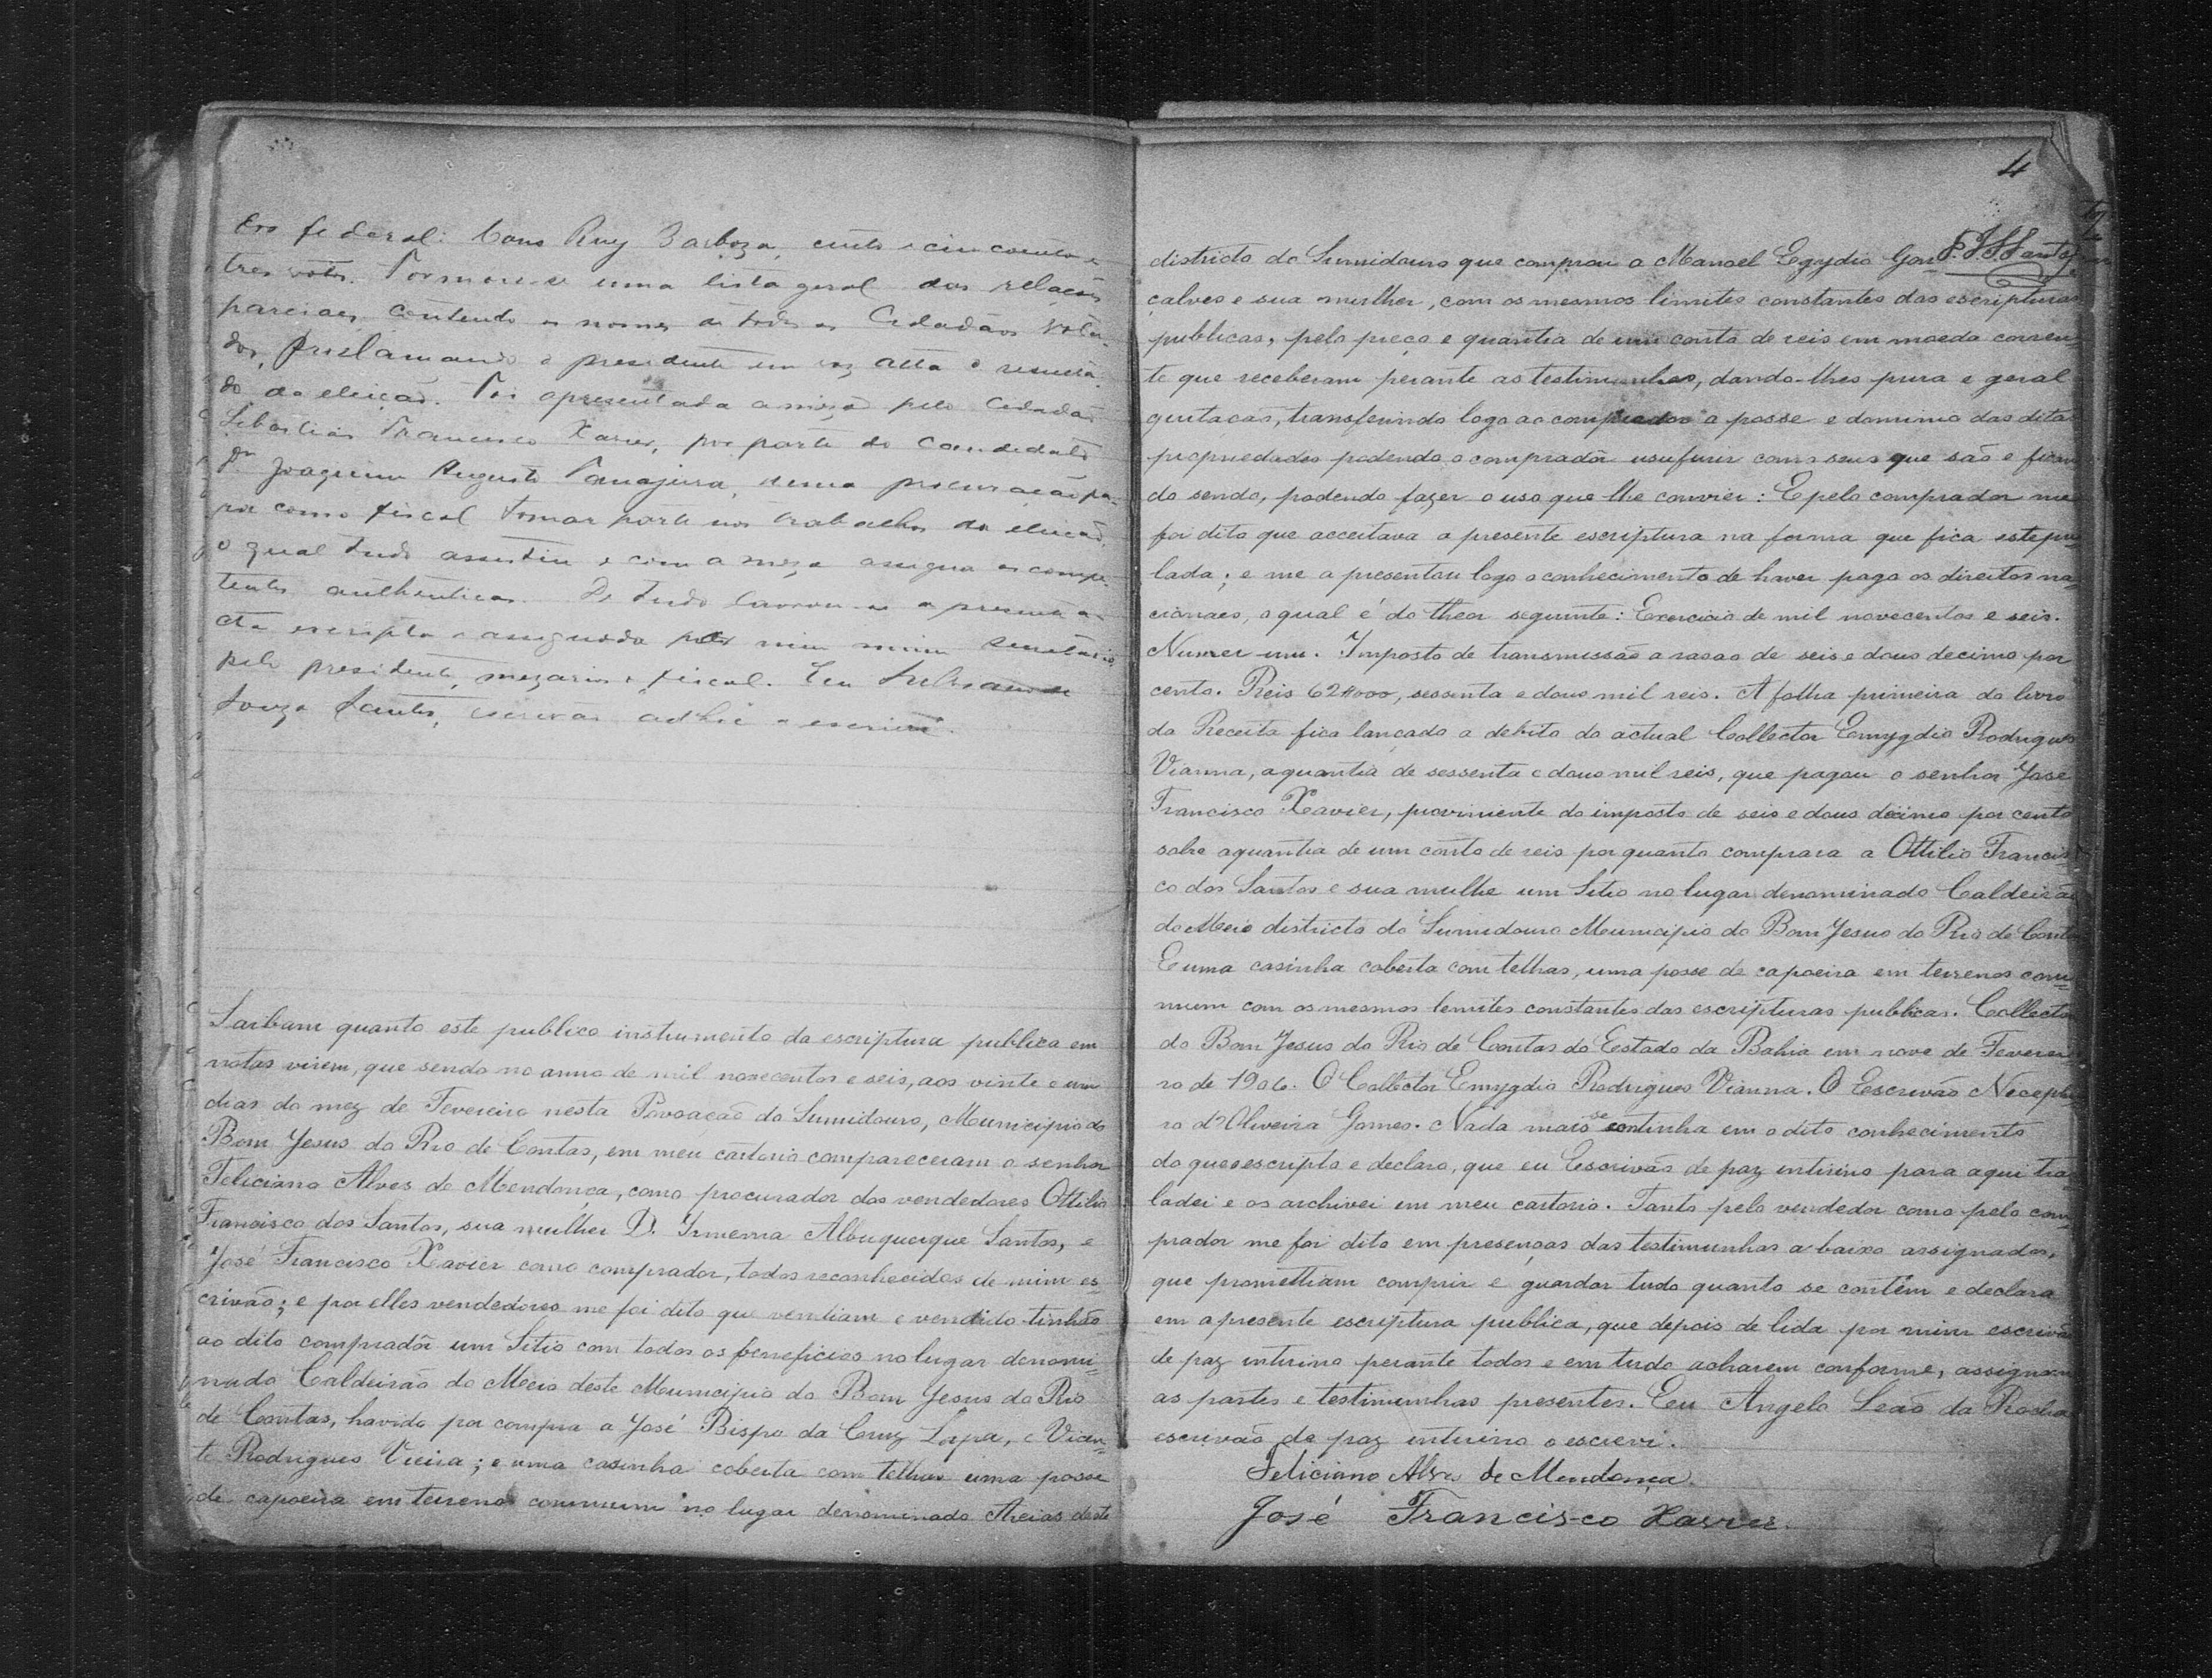 federal: Cons Ruy Barboza, cento e cincoenta e
tres votos. Formou-se uma lista geral das relações
parciaes, contendo os nomes de todos os Cidadãos vota-
dos, proclamando o presidente em voz alta o resulta-
do da eleição. Foi apresentada a meza pelo Cidadão
Sebastião Francisco Xavier, por parte do Candidato
Dr Joaquim Augusto Tanajura, uma procuração pa-
ra como fiscal tomar parte nos trabalhos da eleição,
o qual tudo assistiu e com a meza assigna as compe-
tentes authenticas. De tudo lavrou-se a presente a-
cta escripta e assignada por mim secretario
pelo presidente, mezarios e fiscal. Eu
Souza Santos, escrivão ad hoc o escrevi.
Saibam quanto este publico instrumento da escriptura publica em
notas virem, que sendo no anno de mil novecentos e seis, aos vinte e um
dias do mez de Fevereiro nesta Povoação do Sumidouro, Municipio do
Bom Jesus do Rio de Contas, em meu cartorio compareceram o senhor
Feliciano Alves de Mendonça, como procurador dos vendedores Ottilio
Francisco dos Santos, sua mulher D. Albuquerque Santos, e
José Francisco Xavier como comprador, todos reconhecidos de mim es-
crivão; e por elles vendedores me foi dito que vendiam e vendido tinhão
ao dito comprador um Sitio com todos os beneficios no lugar denomi-
nado Caldeirão do Meio deste Municipio do Bom Jesus do Rio
de Contas, havido por compra a José Bispo da Cruz Lapa, e Vicen-
te Rodrigues Vieira; e uma casinha coberta com telhas uma posse
de capoeira em terreno commum no lugar denominado Areias deste
4
districto do Sumidouro que comprou a Manoel Egydio Gon
çalves e sua mulher, com os mesmos limites constantes das escripturas
publicas, pelo preço e quantia de um conto de reis em moeda corren-
te que receberam perante as testimunhas, dando-lhes pura e geral
quitacão, transferindo logo ao comprador a posse e dominio das ditas
propriedades podendo o comprador usufruir como seus que são e fican-
do sendo, podendo fazer o uso que lhe convier: E pelo comprador me
foi dito que acceitava a presente escriptura na forma que fica estepu-
lada; e me apresentou logo o conhecimento de haver pago os direitos na-
cionaes, o qual é do theor seguinte: Exercicio de mil novecentos e seis.
Numer um. Imposto de transmissão a rasao de seis e dous decimo por
cento. Reis 62$000, sessenta e dous mil reis. A folha primeira do livro
da Receita fica lançado a debito do actual Collector Emygdio Rodrigues
Vianna, a quantia de sessenta e dous mil reis, que pagou o senhor José
Francisco Xavier, proviniente do imposto de seis e dous décimo por cento
sobre a quantia de um conto de reis por quanto comprara a Ottilio Francis-
co dos Santos e sua mulhe um Sitio no lugar denominado Caldeirão
do Meio districto do Sumidouro Municipio do Bom Jesus do Rio de Contas
E uma casinha coberta com telhas, uma posse de capoeira em terrenos com-
mum com os mesmos lemites constantes das escripturas publicas. Collectoria
do Bom Jesus do Rio de Contas do Estado da Bahia em nove de Feverei-
ro de 1906. O Collector Emygdio Rodrigues Vianna. O Escrivão Necepho-
ro d'Oliveira Gomes. Nada mais se continha em o dito conhecimento
do que escripto e declaro, que eu Escrivão de paz interino para aqui tras-
ladei e os archivei em meu cartorio. Tanto pelo vendedor como pelo com-
prador me foi dito em presenças das testimunhas abaixo assignados,
que promettiam comprir e guardar tudo quanto se contêm e declara
em a presente escriptura publica, que depois de lida por mim escrivão
de paz interino perante todos e em tudo acharem conforme, assignam
as partes e testimunhas presentes. Eu Angelo Leão da Rocha
escrivão de paz interino o escrevi.
Feliciano Alves de Mendonça.
José Francisco Xavier.